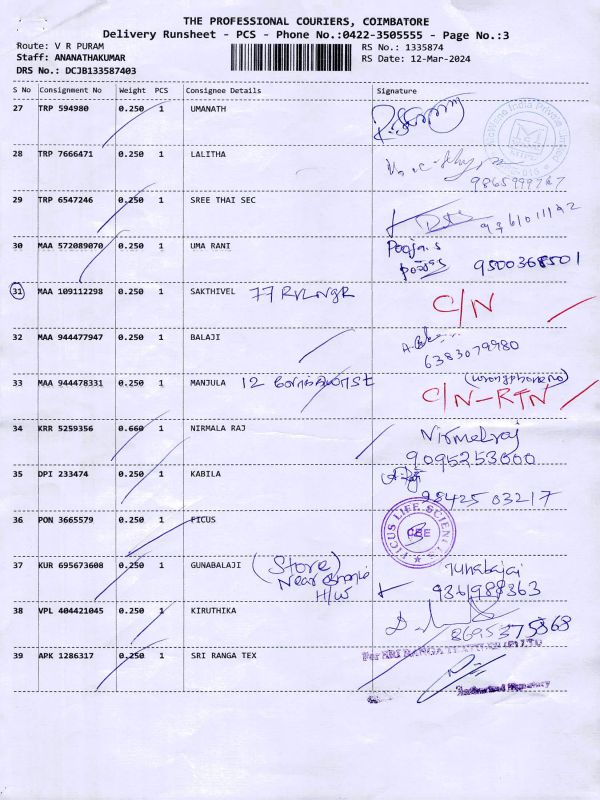 THE PROFESSIONAL COURIERS, COIMBATORE
Delivery Runsheet - PCS - Phone No.:0422-3505555 - Page No.:3
Route: V R PURAM
RS No.: 1335874
Staff: ANANATHAKUMAR
RS Date: 12-Mar-2024
DRS No.: DCJB133587403
S No Consignment No Weight PCS Consignee Details Signature
27 TRP 594980 0.250 1 UMANATH
28 TRP 7666471 0.250 1 LALITHA
29 TRP 6547246 0.250 1 SREE THAI SEC
30 MAA 572089070 0.250 1 UMA RANI Pooja.s
9500368501
31 MAA 109112298 0.250 1 SAKTHIVEL 77 RVLNGR C/N
32 MAA 944477947 0.250 1 BALAJI
6383079980
33 MAA 944478331 0.250 1 MANJULA 12 (wrong phone no)
C/N-RTN
34 KRR 5259356 0.660 1 NIRMALA RAJ Nirmalraj
9095253000
35 DPI 233474 0.250 1 KABILA
9842503217
36 PON 3665579 0.250 1 FICUS FICUS LIFE SCIENCE
CBE
37 KUR 695673608 0.250 1 GUNABALAJI (Store)
Near
H/W
9361988363
38 VPL 404421045 0.250 1 KIRUTHIKA
8695375868
39 APK 1286317 0.250 1 SRI RANGA TEX For SRI RANGA
Authorised Signatory